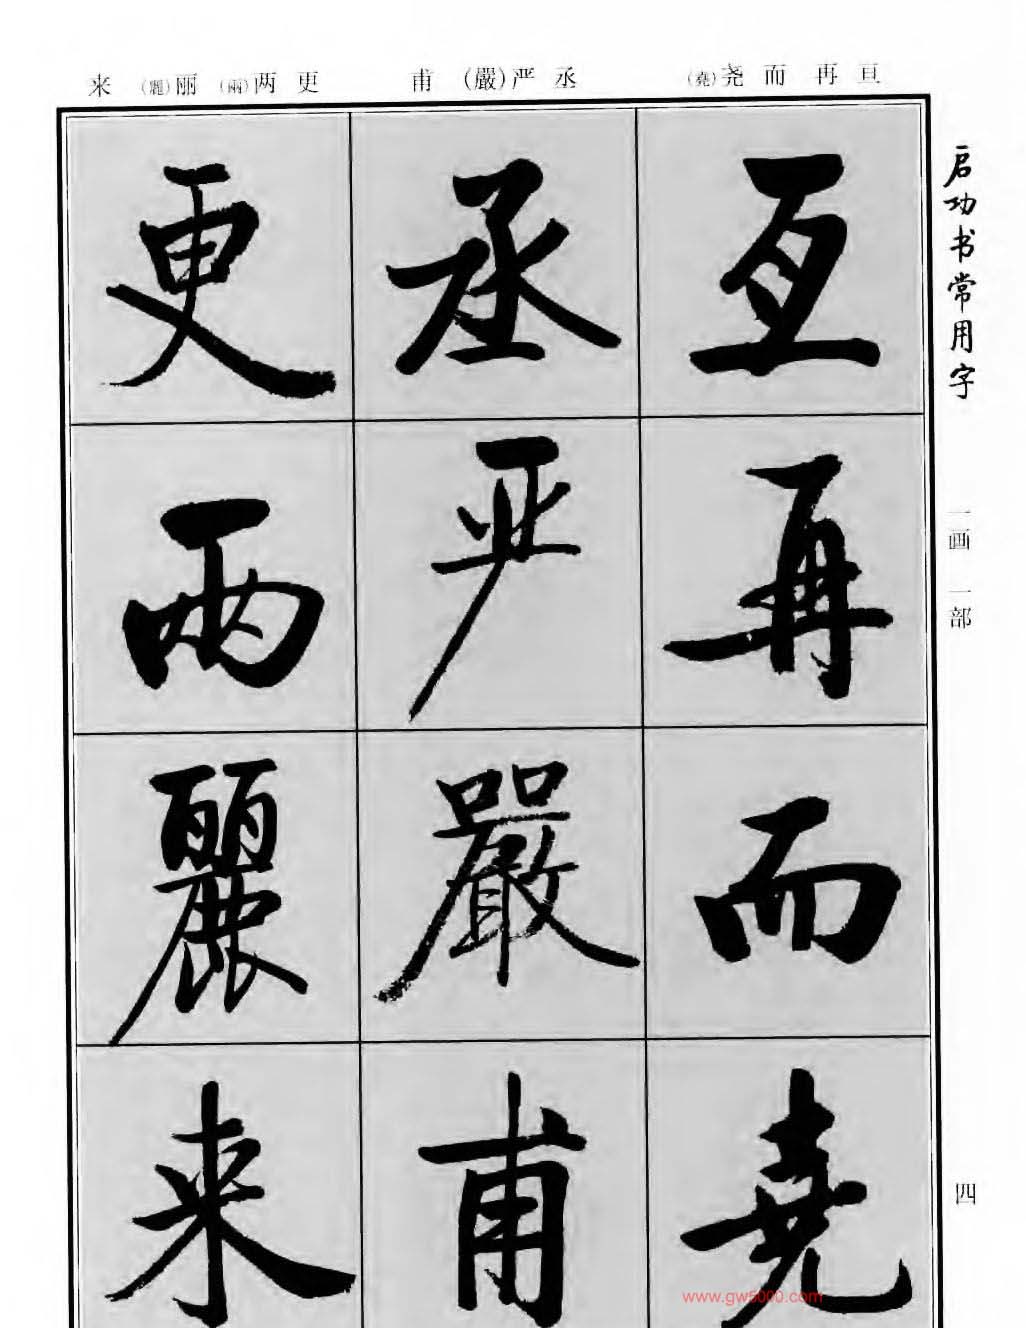 亘 再 而 尧(堯)
丞 严(嚴) 甫
更 两(兩) 丽(麗) 来
启功书常用字
一画 一部
四
亘
再
而
堯
丞
严
嚴
甫
更
兩
麗
来
www.gw5000.com